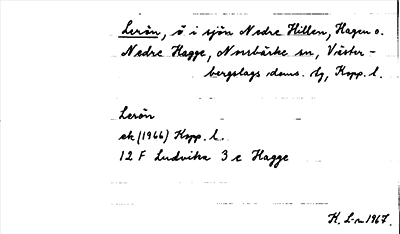 Lerön, ö i sjön Nedre Hillen, Hagen o.
Nedre Hagge, Norrbärke sn, Väster-
bergslags doms. dg, Kopp. l.
Lerön
ek (1966) Kopp. l.
12 F Ludvika 3 c Hagge
K. L-n 1967.